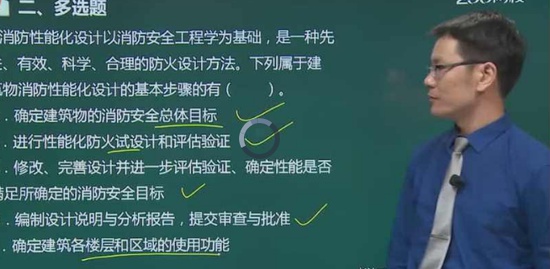 二、多选题
消防性能化设计以消防安全工程学为基础，是一种先
、有效、科学、合理的防火设计方法。下列属于建
物消防性能化设计的基本步骤的有（ ）。
．确定建筑物的消防安全总体目标
．进行性能化防火试设计和评估验证
．修改、完善设计并进一步评估验证、确定性能是否
满足所确定的消防安全目标
．编制设计说明与分析报告，提交审查与批准
．确定建筑各楼层和区域的使用功能